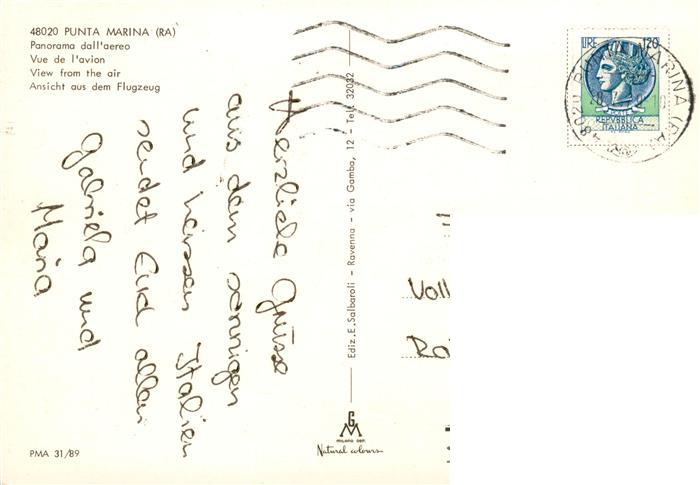 48020 PUNTA MARINA (RA)
Panorama dall'aereo
Vue de l'avion
View from the air
Ansicht aus dem Flugzeug
Herzliche Grüsse
aus dem sonnigen
und heissen Italien
sendet Euch allen
Gabriela und
Maria
PMA 31/89
Ediz. E. Salbaroli - Ravenna - via Gamba, 12 - Tel. 32032
G
M
MILANO DEP.
Natural colours
LIRE 120
REPVBBLICA
ITALIANA
48020 PUNTA MARINA (RA)
Voll
Ro